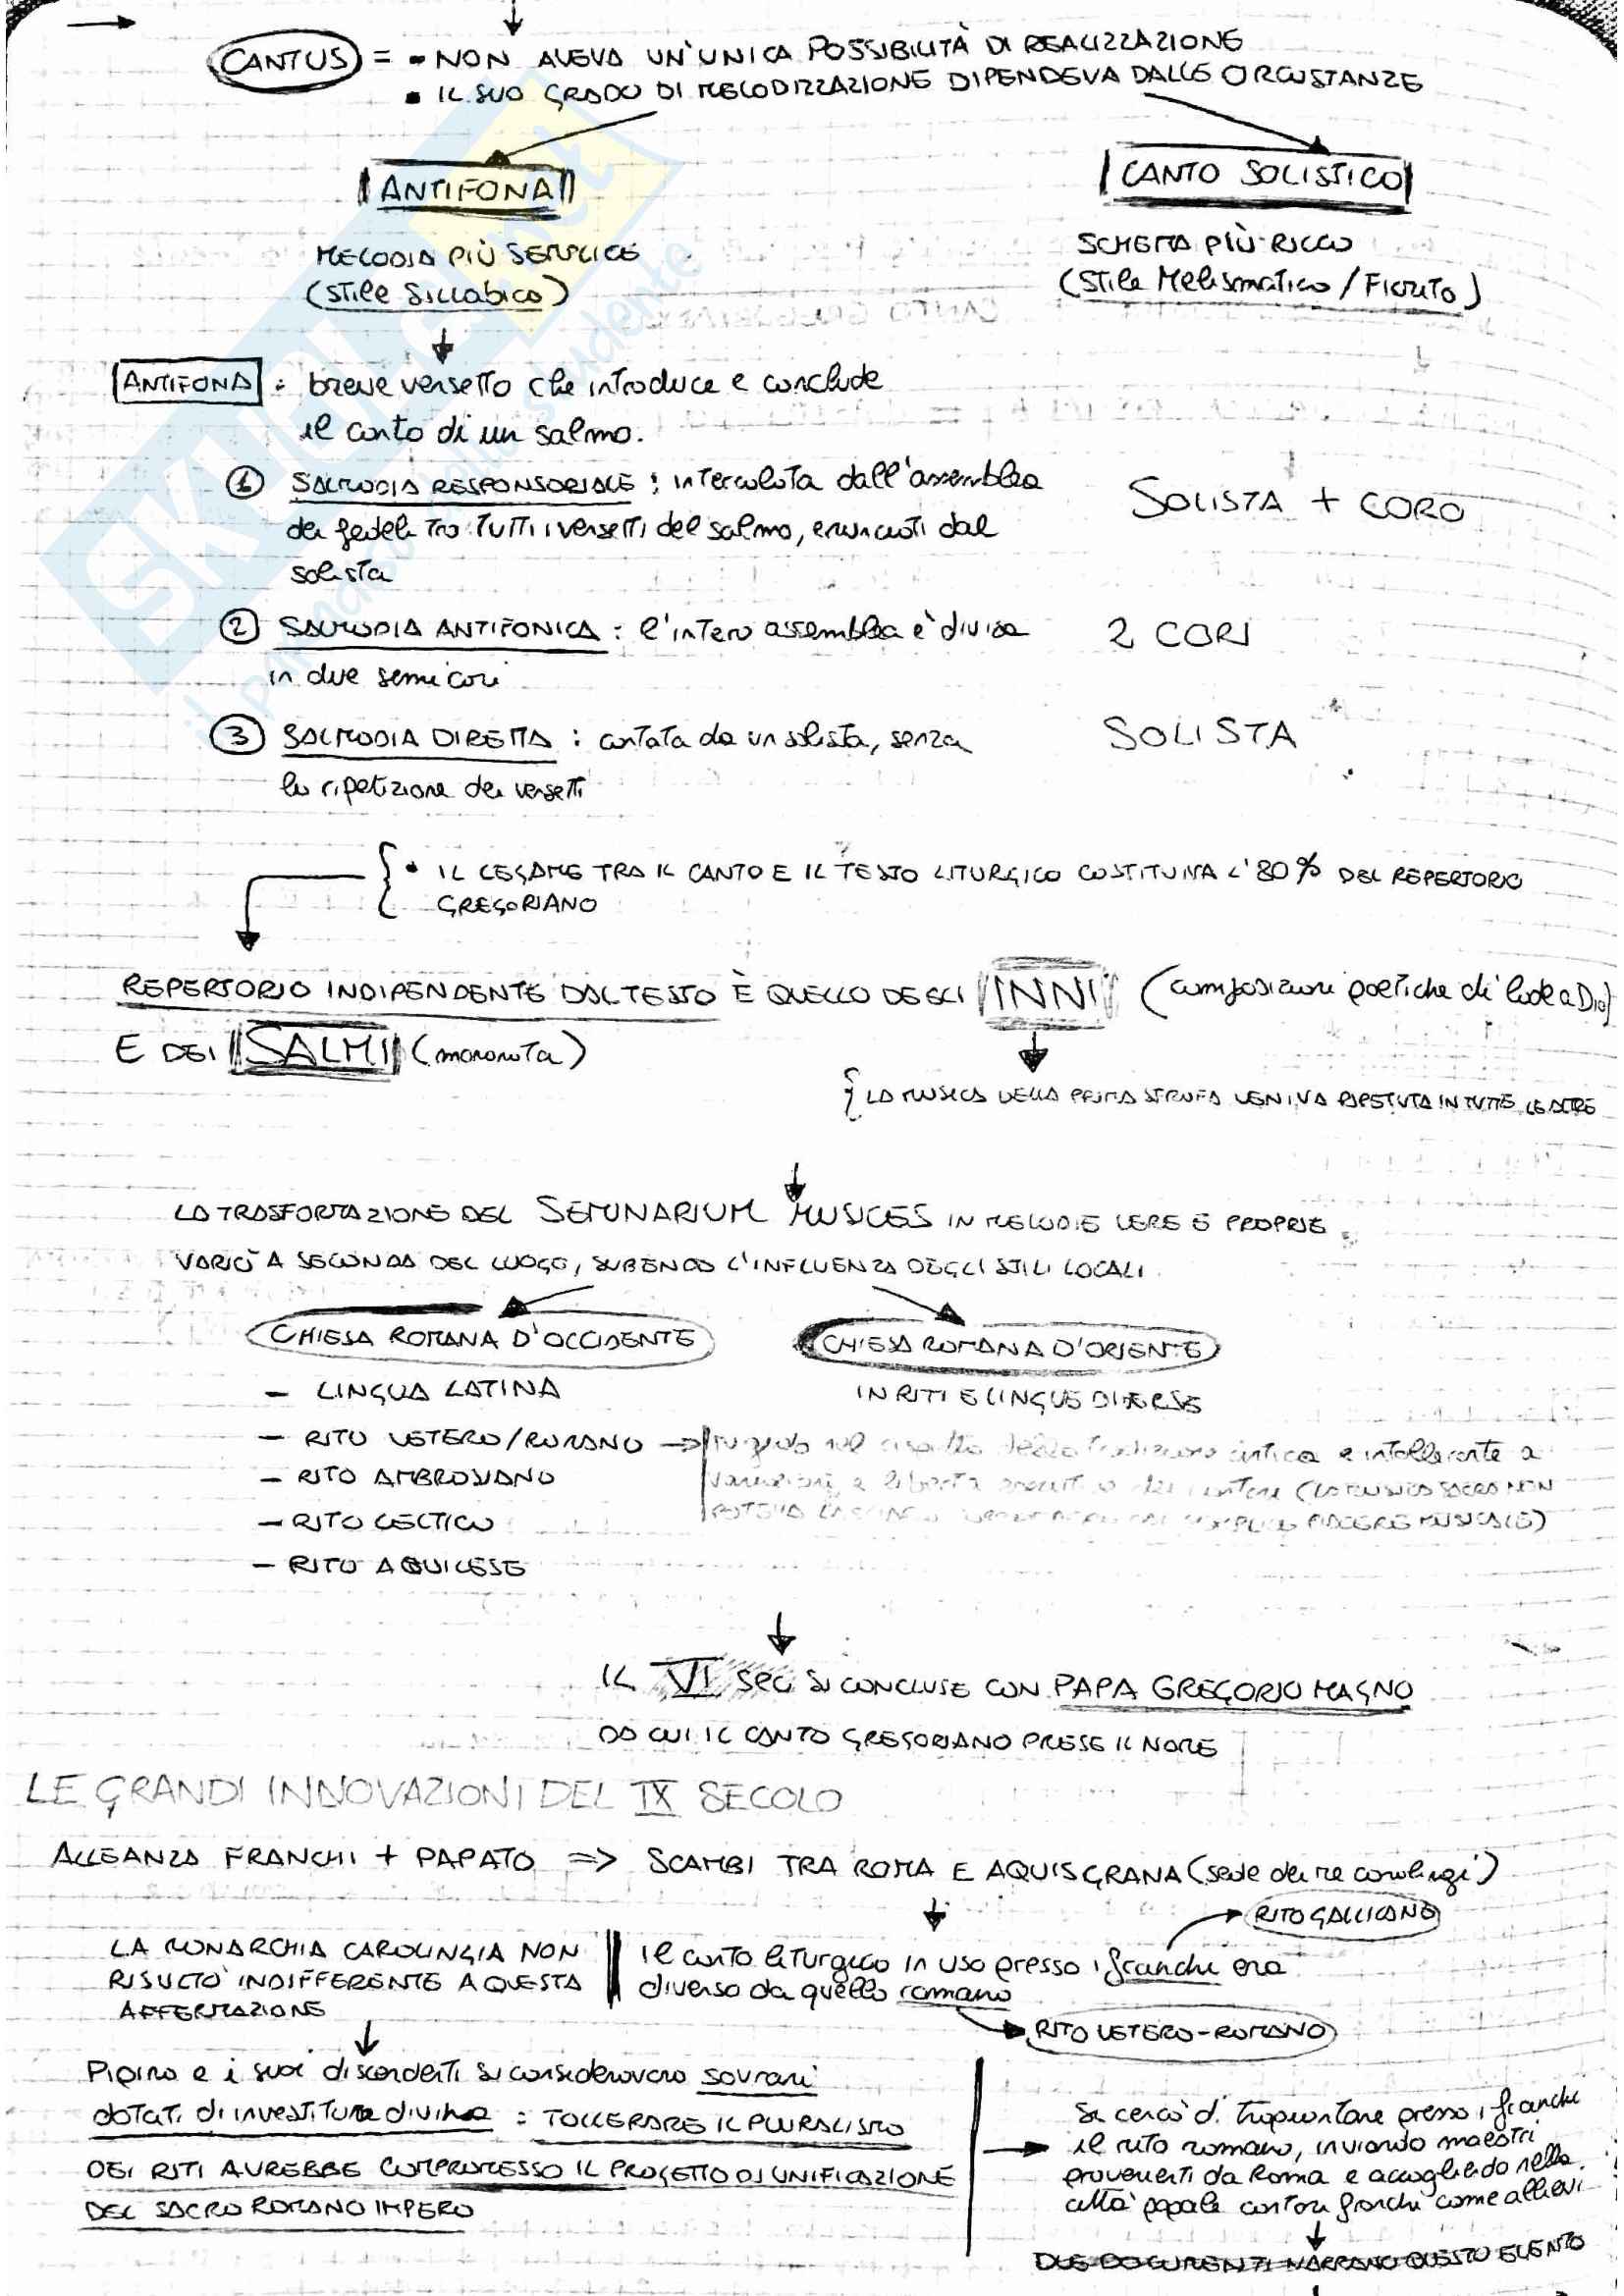 CANTUS = • NON AVEVA UN'UNICA POSSIBILITÀ DI REALIZZAZIONE
• IL SUO GRADO DI MELODIZZAZIONE DIPENDEVA DALLE CIRCOSTANZE
ANTIFONA
CANTO SOLISTICO
MELODIA PIÙ SEMPLICE
(STILE SILLABICO)
SCHEMA PIÙ RICCO
(STILE MELISMATICO / FIORITO)
ANTIFONA : breve versetto che introduce e conclude
il canto di un salmo.
① SALMODIA RESPONSORIALE : intercalata dall'assemblea
dei fedeli tra tutti i versetti del salmo, enunciati dal
solista
SOLISTA + CORO
② SALMODIA ANTIFONICA : l'intera assemblea è divisa
in due semicori
2 CORI
③ SALMODIA DIRETTA : cantata da un solista, senza
la ripetizione dei versetti
SOLISTA
• IL LEGAME TRA IL CANTO E IL TESTO LITURGICO COSTITUIVA L'80% DEL REPERTORIO
GREGORIANO
REPERTORIO INDIPENDENTE DAL TESTO È QUELLO DEGLI INNI (composizioni poetiche di lode a Dio)
E DEI SALMI (mononota)
LA MUSICA DELLA PRIMA STROFA VENIVA RIPETUTA IN TUTTE LE ALTRE
LA TRASFORMAZIONE DEL SEMINARIUM MUSICES IN MELODIE VERE E PROPRIE
VARIÒ A SECONDA DEL LUOGO, SUBENDO L'INFLUENZA DEGLI STILI LOCALI
CHIESA ROMANA D'OCCIDENTE
CHIESA ROMANA D'ORIENTE
- LINGUA LATINA
IN RITI E LINGUE DIVERSE
- RITO VETERO/ROMANO → rigido nel rispetto della tradizione antica e intollerante a
variazioni e libertà esecutive dei cantori (LA MUSICA SACRA NON
POTEVA SEMPLICE PIACERE MUSICALE)
- RITO AMBROSIANO
- RITO CELTICO
- RITO AQUILESE
IL VI SEC SI CONCLUSE CON PAPA GREGORIO MAGNO
DA CUI IL CANTO GREGORIANO PRESE IL NOME
LE GRANDI INNOVAZIONI DEL IX SECOLO
ALLEANZA FRANCHI + PAPATO => SCAMBI TRA ROMA E AQUISGRANA (sede dei re carolingi)
RITO GALLICANO
LA MONARCHIA CAROLINGIA NON
RISULTÒ INDIFFERENTE A QUESTA
AFFERMAZIONE
Il canto liturgico in uso presso i franchi era
diverso da quello romano
RITO VETERO-ROMANO
Pipino e i suoi discendenti si consideravano sovrani
dotati di investitura divina : TOLLERARE IL PLURALISMO
DEI RITI AVREBBE COMPROMESSO IL PROGETTO DI UNIFICAZIONE
DEL SACRO ROMANO IMPERO
Si cercò di trapiantare presso i franchi
il rito romano, inviando maestri
provenienti da Roma e accogliendo nella
città papale cantori franchi come allievi
DUE DOCUMENTI NARRANO QUESTO EVENTO